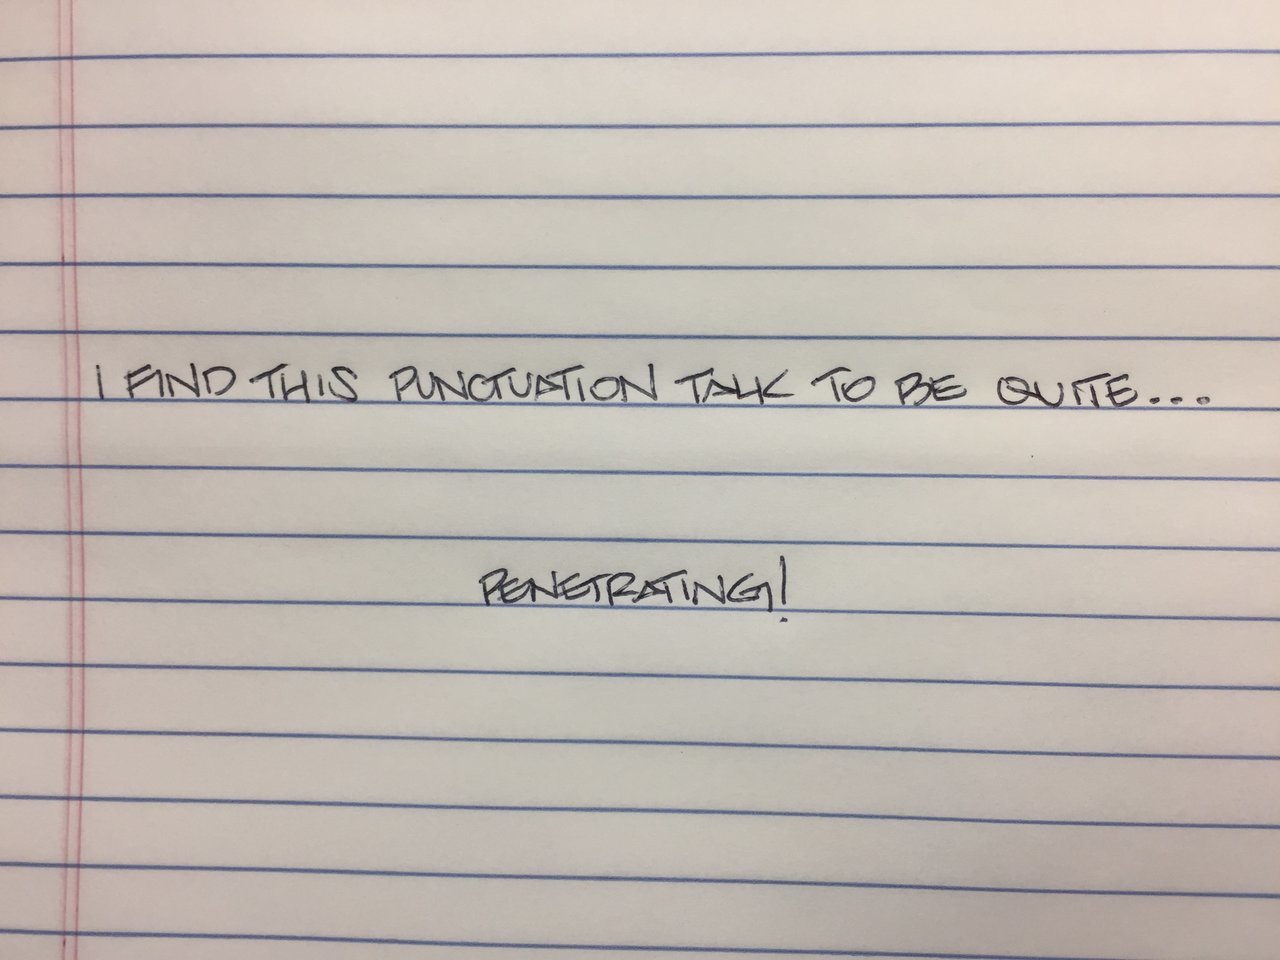 I FIND THIS PUNCTUATION TALK TO BE QUITE...
PENETRATING!